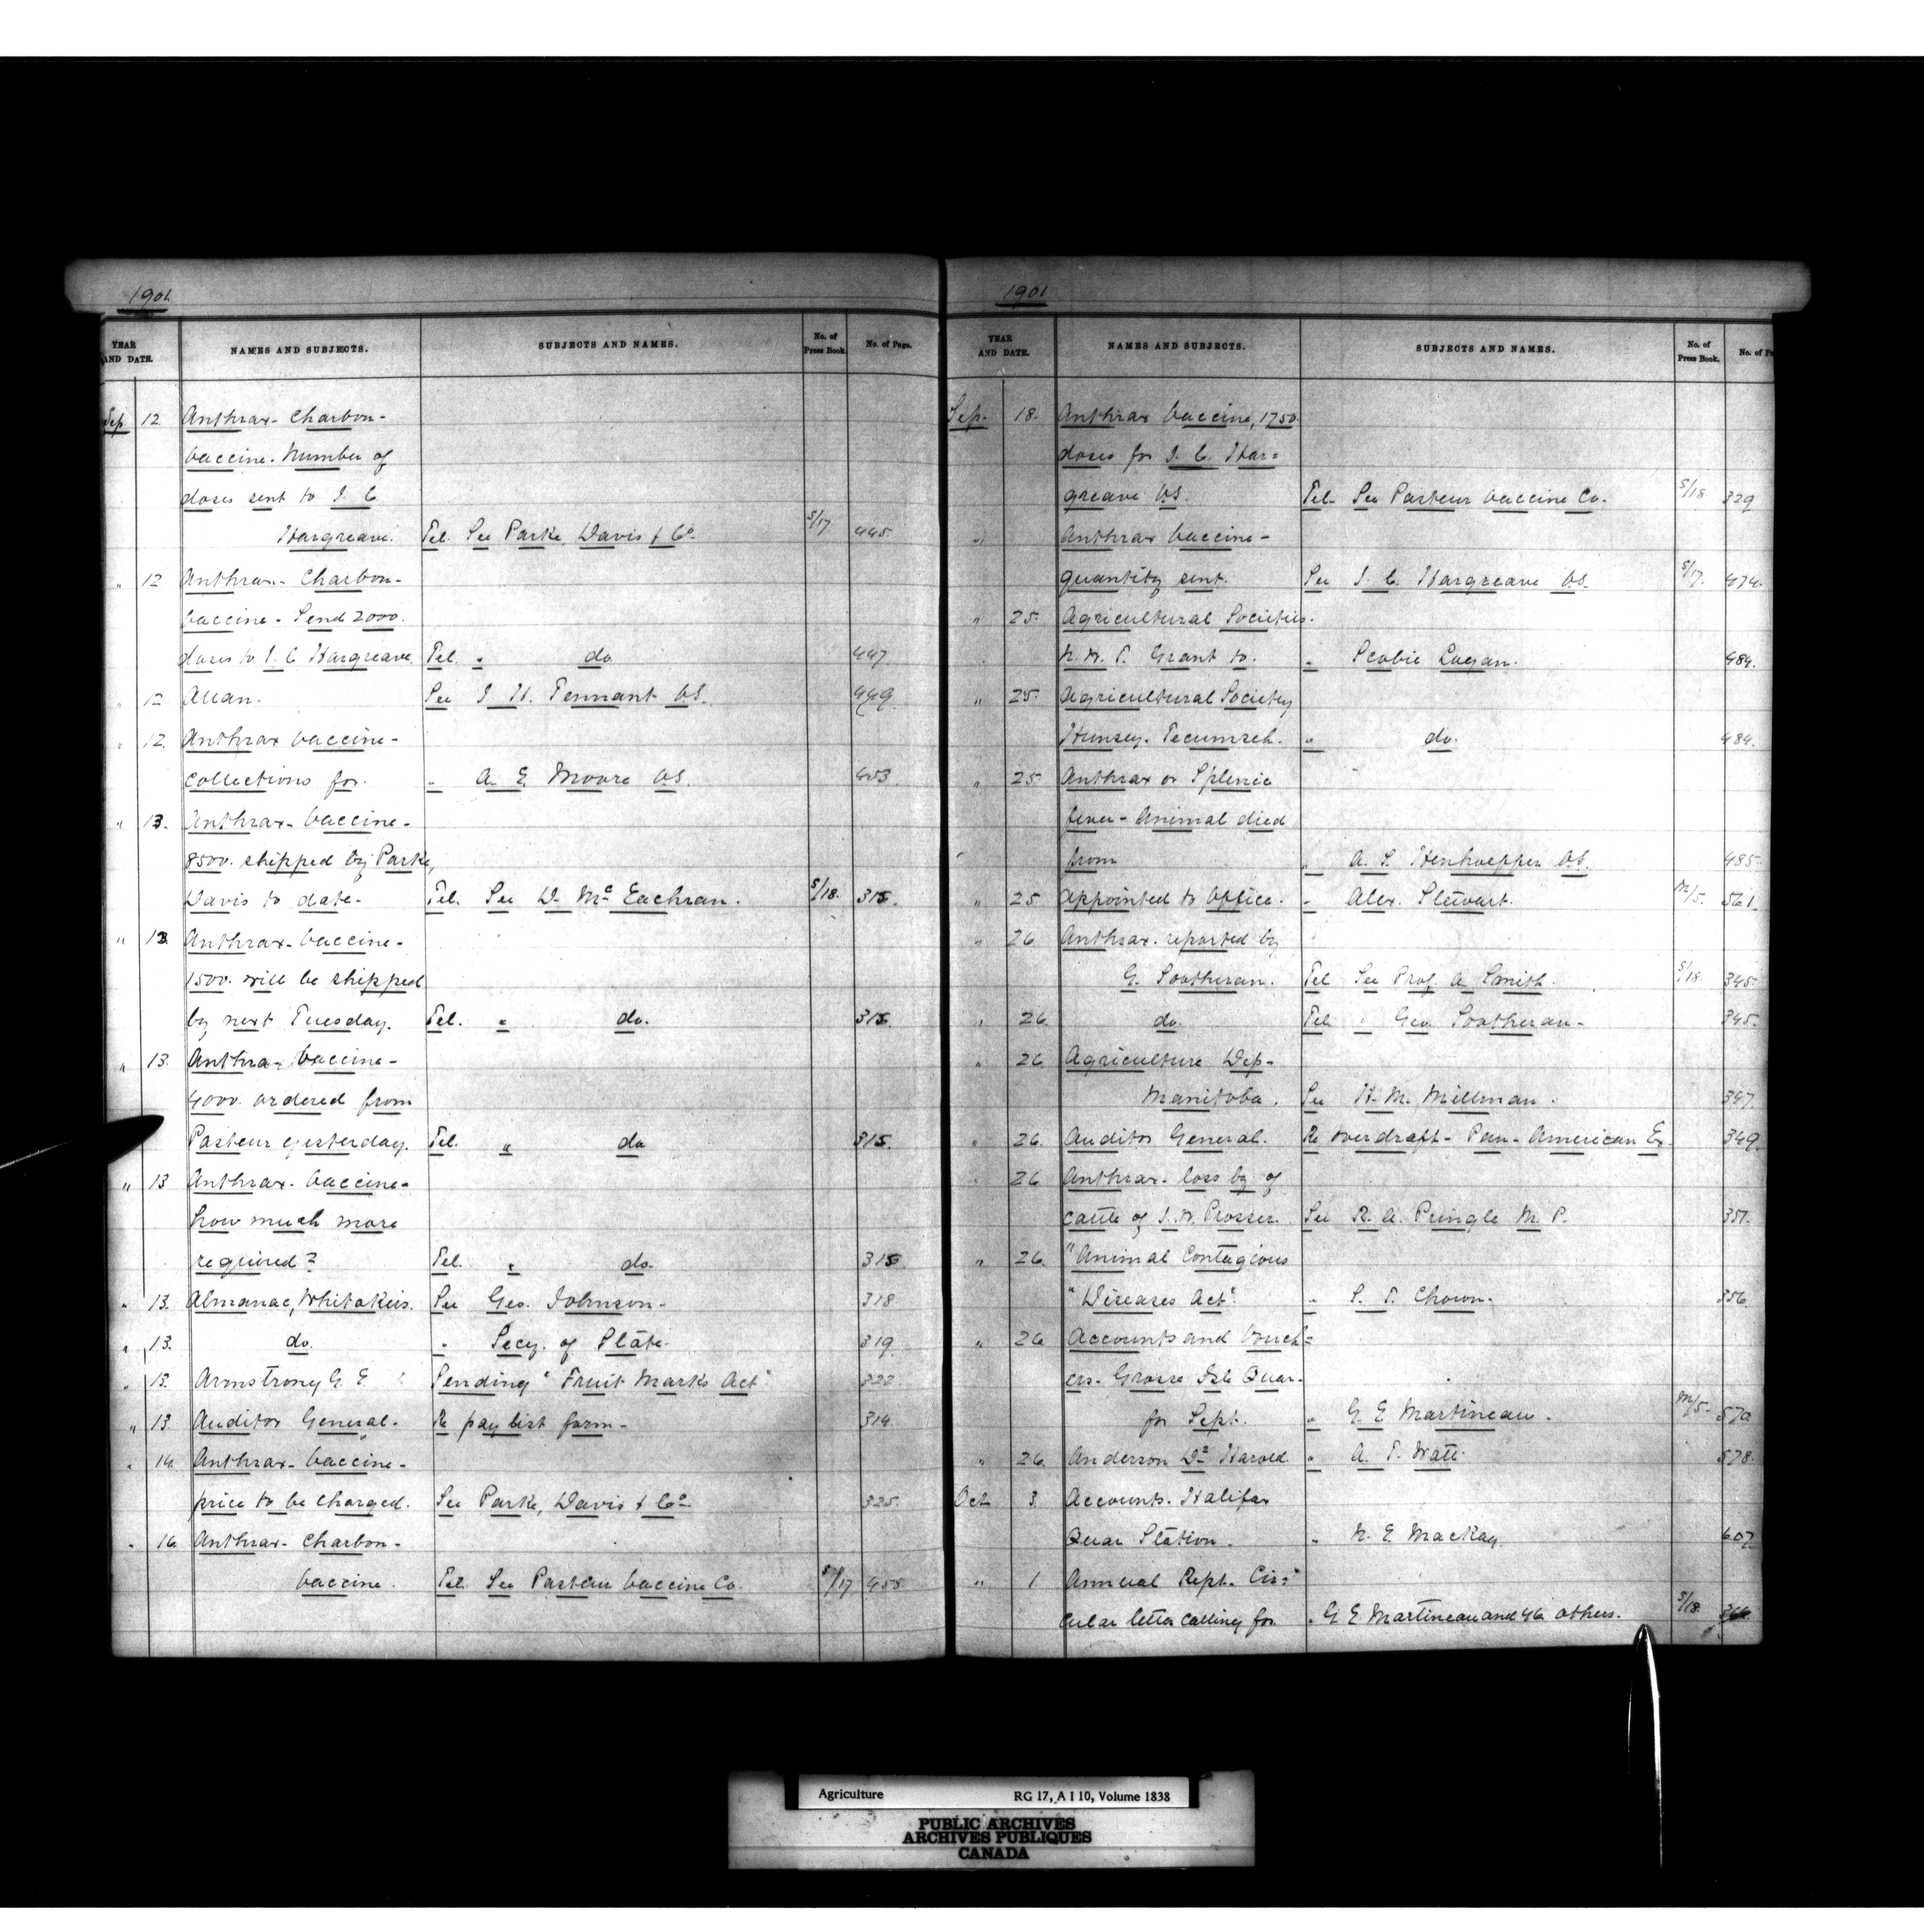 1901
YEAR AND DATE. NAMES AND SUBJECTS. SUBJECTS AND NAMES. No. of Press Book. No. of Page.
Sep 12 Anthrax - Charbon -
vaccine. Number of
doses sent to J. C.
Hargreave. Tel. See Parke, Davis & Co. S/17 445
" 12 Anthrax - Charbon -
vaccine - Send 2000.
doses to J. C. Hargreave. Tel. " do 447
" 12 Allan. See J. H. Tennant V.S. 449
" 12. Anthrax vaccine -
collections for. " A. E. Moore V.S. 453
" 13. Anthrax - Vaccine -
8500. shipped by Parke,
Davis to date - Tel. See D. McEachran. S/18. 315.
" 13 Anthrax - Vaccine -
1500. will be shipped
by next Tuesday. Tel. " do. 315
" 13. Anthra - Vaccine -
4000. ordered from
Pasteur yesterday. Tel. " do 315.
" 13 Anthrax - Vaccine -
how much more
required? Tel. " do. 315
" 13. Almanac, Whitakers. See Geo. Johnson - 318
" 13. do. " Secy. of State. 319
" 13. Armstrong G. E. Sending "Fruit Marks Act" 322
" 13. Auditor General - Re pay list form - 314
" 14. Anthrax - Vaccine -
price to be charged. See Parke, Davis & Co. 325.
" 16 Anthrax - Charbon -
vaccine. Tel. See Pasteur Vaccine Co. S/17 455
1901
YEAR AND DATE. NAMES AND SUBJECTS. SUBJECTS AND NAMES. No. of Press Book. No. of Pa
Sep. 18. Anthrax Vaccine, 1750
doses for J. C. Har=
greave V.S. Tel - See Pasteur Vaccine Co. S/18. 329
" Anthrax Vaccine -
quantity sent. See J. C. Hargreave V.S. S/17. 474.
" 25. Agricultural Societies.
N. W. T. Grant to. " Scobie Logan. 484.
" 25. Agricultural Society
Tecumseh. " do. 484.
" 25 Anthrax or Splenic
fever - Animal died
from " V.S. 485.
" 25 Appointed to Office. " Alex. Stewart. M/5. 561.
" 26 Anthrax. reported by
G. Sootheran. Tel See Prof. A. Smith. S/18 345.
" 26 do. Tel " Geo. Sootheran - 345.
" 26 Agriculture Dep -
Manitoba. See H. M. Millman. 347.
" 26. Auditor General. Re overdraft - Pan-American Ex - 349.
" 26 Anthrax - loss by of
cattle of J. W. Prosser. See R. A. Pringle M. P. 351.
" 26. "Animal Contagious
"Diseases Act". " S. T. Chown. 356
" 26 Accounts and Vouch=
ers. Grosse Isle Quar.
for Sept. " G. E. Martineau. M/5. 570
" 26 Anderson Dr Harold " A. T. Watt. 578.
Oct 3 Accounts. Halifax
Quar Station. " N. E. MacKay. 607.
" 1 Annual Rept. Cir=
cular letter calling for " G. E. Martineau and 46 others. S/18.
Agriculture RG 17, A I 10, Volume 1838
PUBLIC ARCHIVES
ARCHIVES PUBLIQUES
CANADA